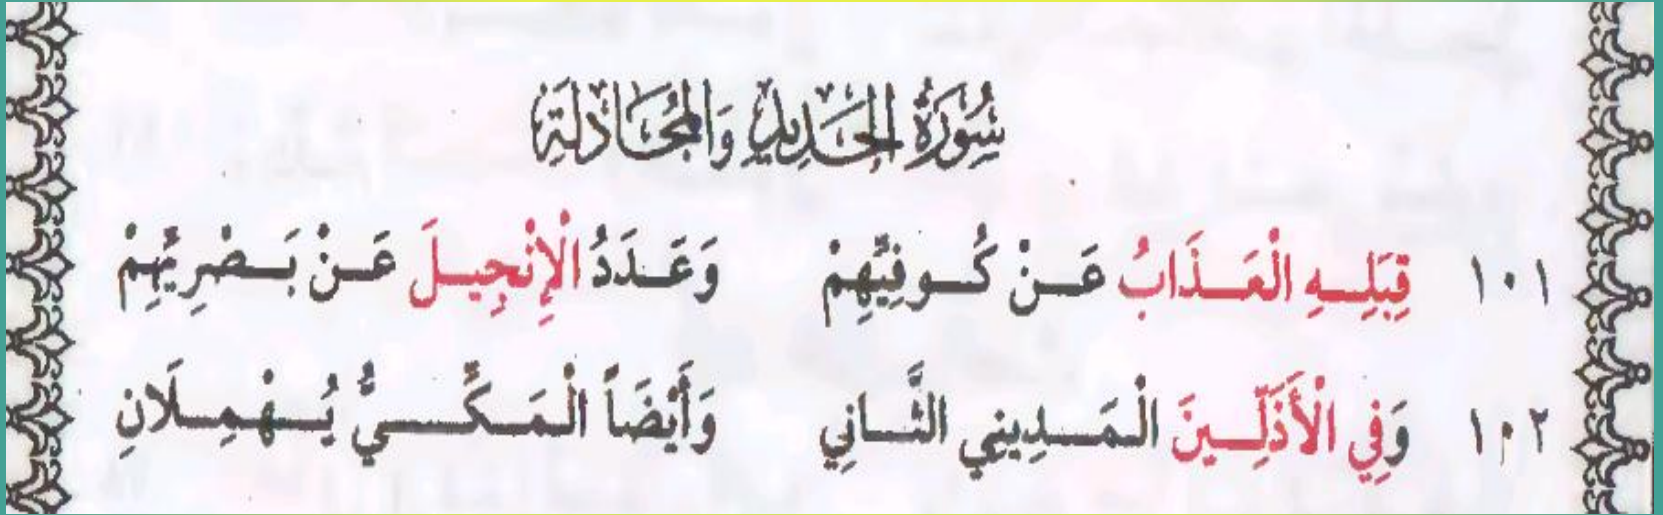 سُورَةُ الْحَدِيدِ وَالْمُجَادَلَةِ
١٠١ قِبَلِهِ الْعَذَابُ عَنْ كُوفِيِّهِمْ وَعَدَدُ الْإِنْجِيلَ عَنْ بَصْرِيِّهِمْ
١٠٢ وَفِي الْأَذَلِّينَ الْمَدِينِي الثَّانِي وَأَيْضَاً الْمَكِّيُّ يُهْمِلَانِ